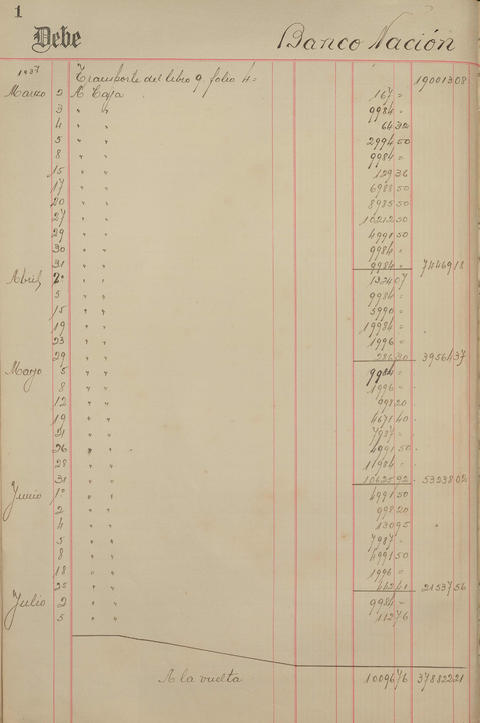 1
Debe Banco Nación
1937 Transporte del libro 9 folio 4= 190013 08
Marzo 2 A Caja 167 =
3 " " 9984 =
4 " " 64 32
5 " " 2994 50
8 " " 9984 =
15 " " 129 36
17 " " 6988 50
20 " " 8985 50
27 " " 10212 50
29 " " 4991 50
30 " " 9984 =
31 " " 9984 = 74469 18
Abril 1º " " 1324 07
5 " " 9984 =
15 " " 5990 =
19 " " 19984 =
23 " " 1996 =
29 " " 286 30 39564 37
Mayo 5 " " 9984 =
8 " " 1996 =
12 " " 998 20
19 " " 4671 40
21 " " 7987 =
26 " " 4991 50
28 " " 11984 =
31 " " 10625 92 53238 02
Junio 1º " " 4991 50
2 " " 998 20
4 " " 130 95
5 " " 7987 =
8 " " 4991 50
18 " " 1996 =
25 " " 442 41 21537 56
Julio 2 " " 9984 =
5 " " 112 76
A la vuelta 10096 76 378822 21